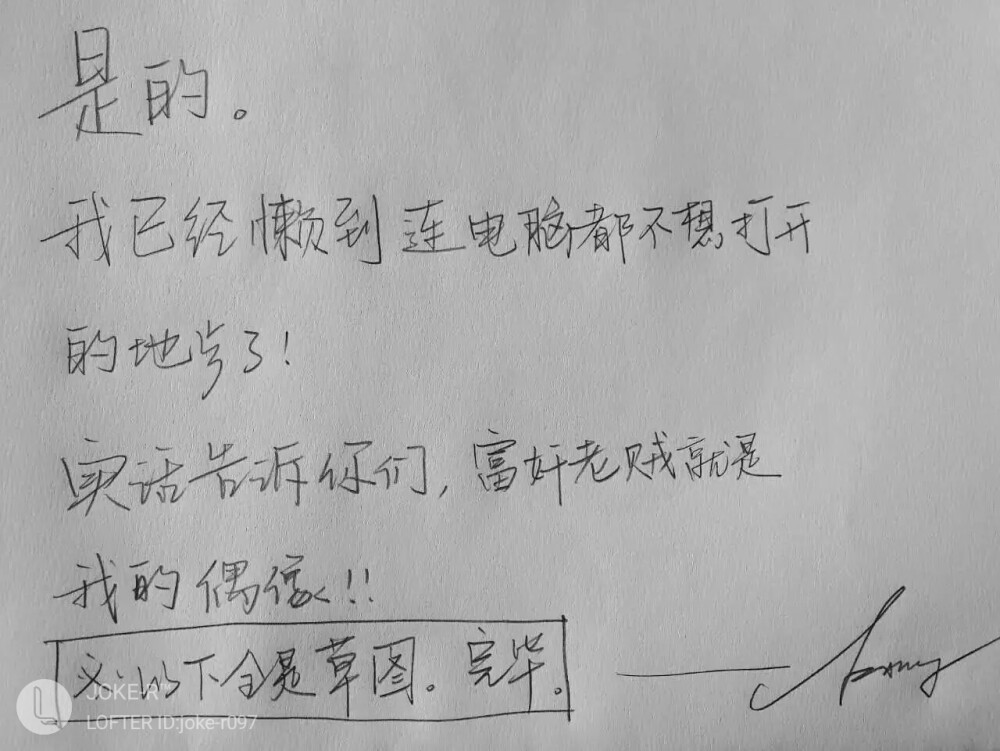 是的。
我已经懒到连电脑都不想打开
的地步了!
实话告诉你们,富奸老贼就是
我的偶像!!
以下全是草图。完毕。
JOKER™
LOFTER ID:joke-r097